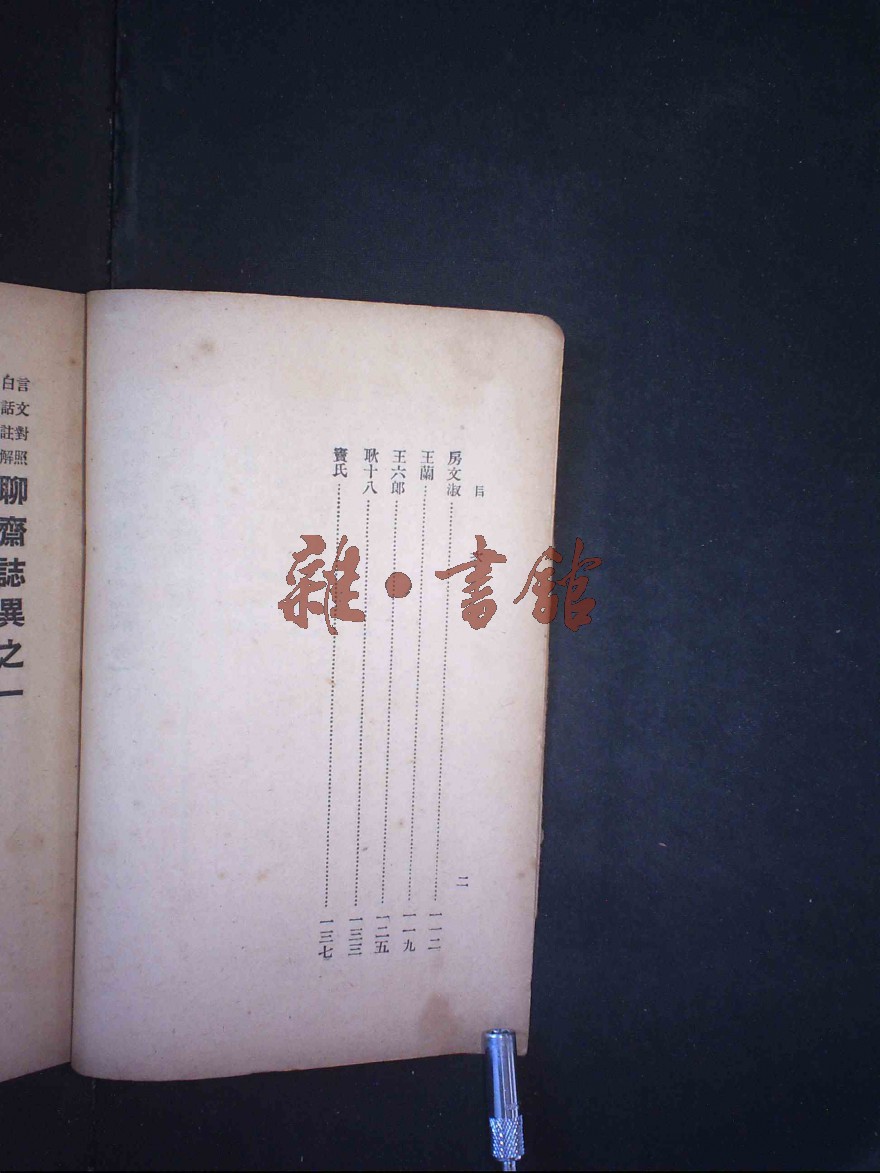 目　二
房文淑……一一二
王蘭……一一九
王六郎……一二五
耿十八……一三三
竇氏……一三七
言文對照
白話註解
聊齋誌異之一
雜·書館